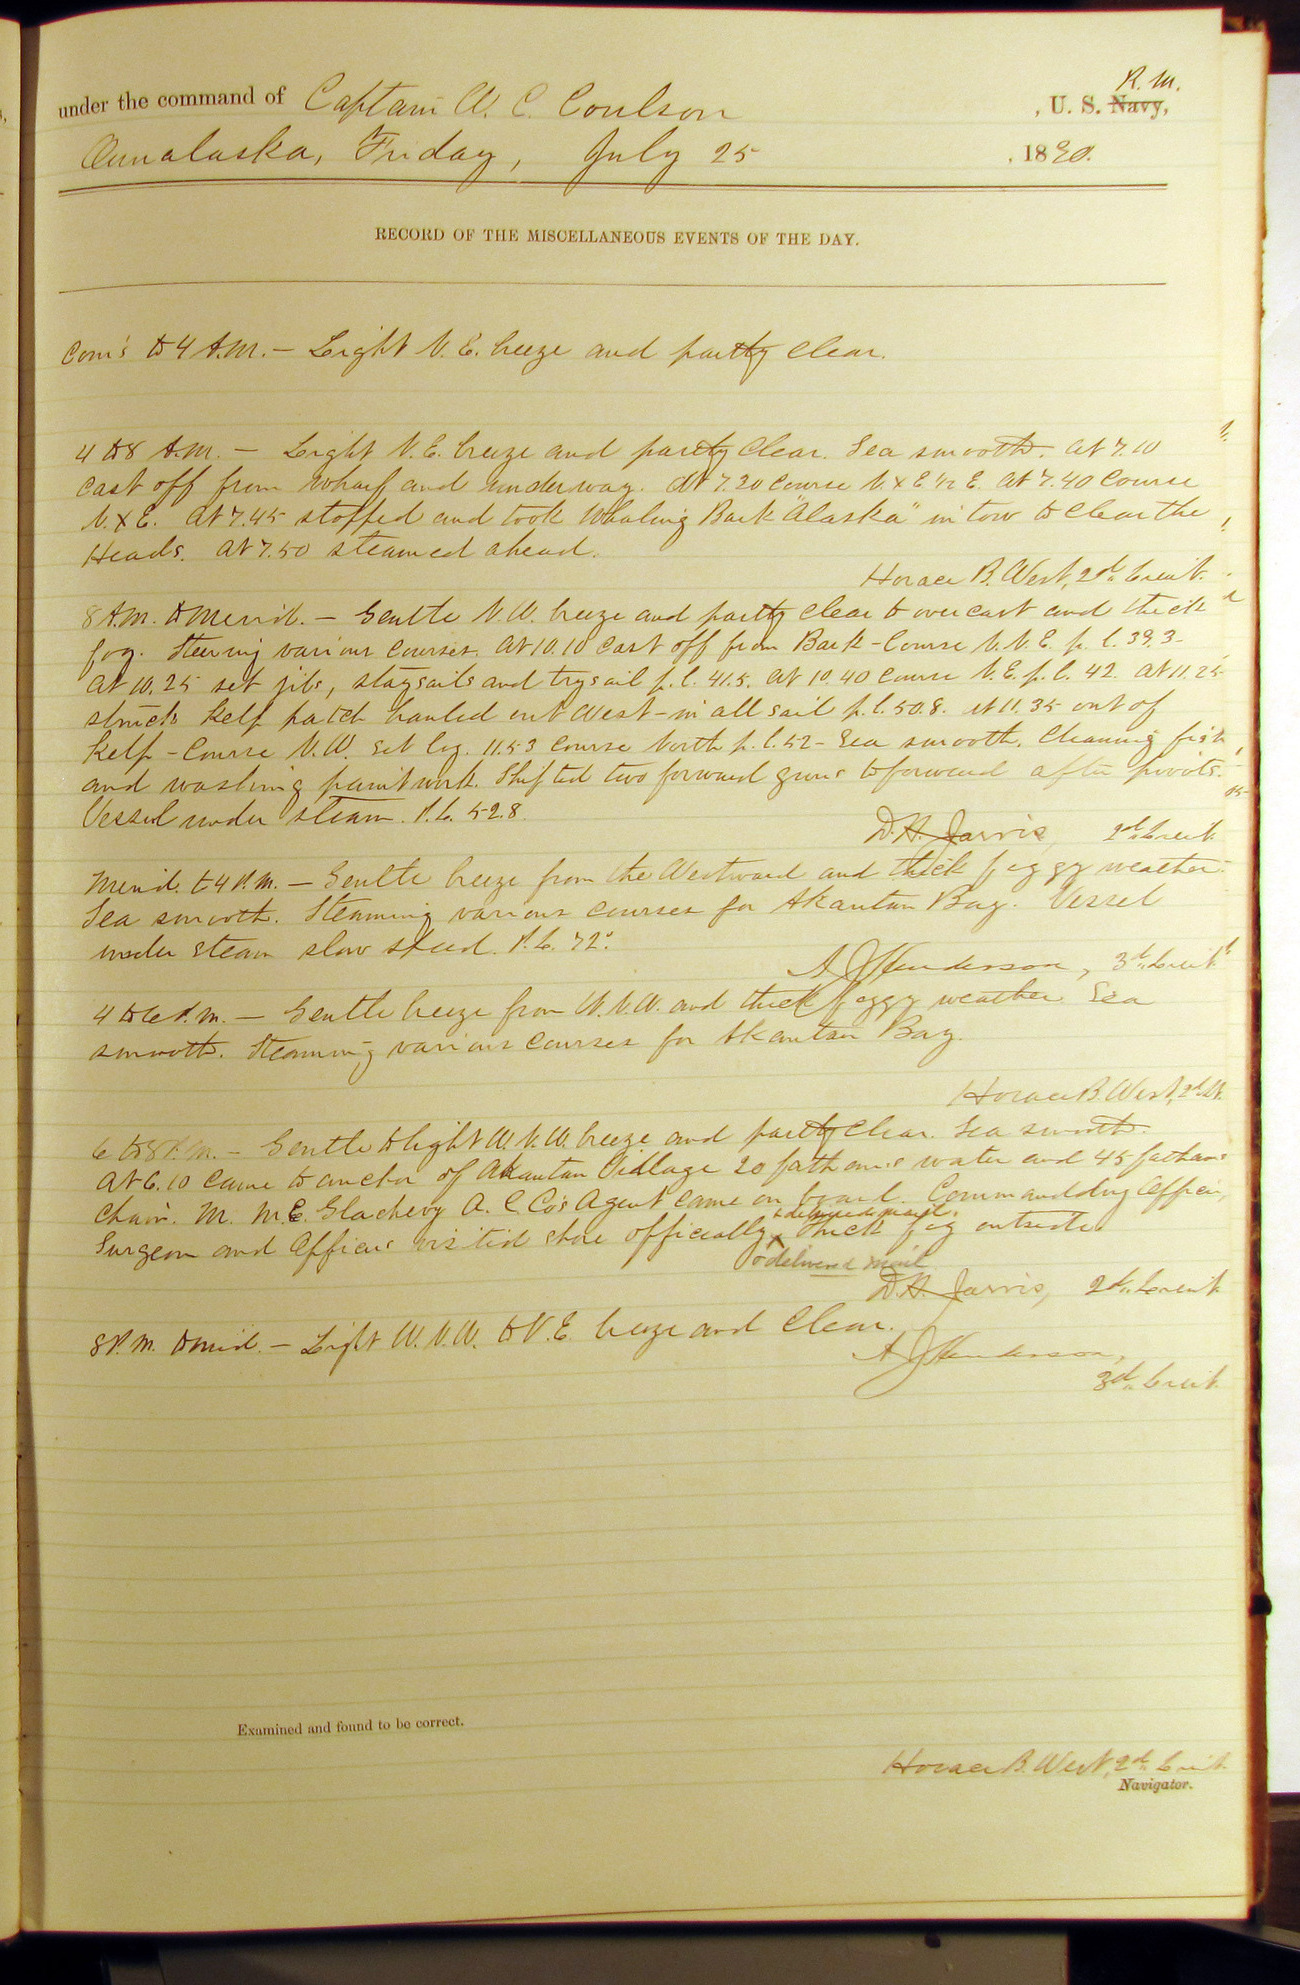 R. M.
under the command of Captain W. C. Coulson , U. S. Navy,
Ounalaska, Friday, July 25 , 1890.
RECORD OF THE MISCELLANEOUS EVENTS OF THE DAY.
Com's to 4 A.M. — Light N. E. breeze and partly clear.
4 to 8 A.M. — Light N. E. breeze and partly clear. Sea smooth. At 7.10
cast off from wharf and underway. At 7.20 course N x E ½ E. At 7.40 course
N. x E. At 7.45 stopped and took Whaling Bark "Alaska" in tow to clear the
Heads. At 7.50 steamed ahead.
Horace B. West, 2d Lieut.
8 A.M. to Merid. — Gentle N. W. breeze and partly clear to overcast and thick
fog. Steering various courses. At 10.10 cast off from Bark - Course N. N. E. p. l. 39.3 -
At 10.25 set jibs, staysails and trysail p. l. 41.5. At 10.40 course N. E. p. l. 42. At 11.25
struck kelp patch hauled out West - in all sail p. l. 50.8. At 11.35 out of
kelp - Course N. W. Set log. 11.53 course North p. l. 52 - Sea smooth. Cleaning fish
and washing paintwork. Shifted two forward guns to forward after pivots.
Vessel under steam. P. L. 52.8.
D. H. Jarvis, 2d Lieut.
Merid. to 4 P.M. — Gentle breeze from the Westward and thick foggy weather.
Sea smooth. Steaming various courses for Akantan Bay. Vessel
under steam slow speed. P. L. 72.
A J Henderson, 3d Lieut.
4 to 6 P.M. — Gentle breeze from W. N. W. and thick foggy weather. Sea
smooth. Steaming various courses for Akantan Bay.
Horace B. West, 2d Lt.
6 to 8 P.M. — Gentle to light W. N. W. breeze and partly clear. Sea smooth.
At 6.10 came to anchor of Akantan Village 20 fathoms water and 45 fathoms
chain. M. Mc Glachevy A. C Co's Agent came on board. Commandding Officer,
& delivered mail.
Surgeon and Officers visited shore officially. Thick fog outside.
& delivered mail
D. H. Jarvis, 2d Lieut.
8 P.M. to mid. — Light W. N. W. to N. E. breeze and clear.
A J Henderson,
3d Lieut.
Examined and found to be correct.
Horace B. West, 2d Lieut.
Navigator.